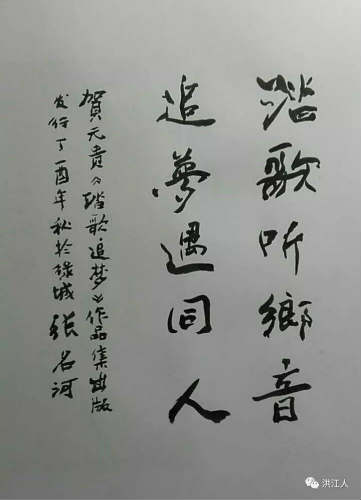 踏歌听鄉音
追夢遇同人
賀元贵《踏歌追梦》作品集出版
发行丁酉年秋於绿城张名河
洪江人